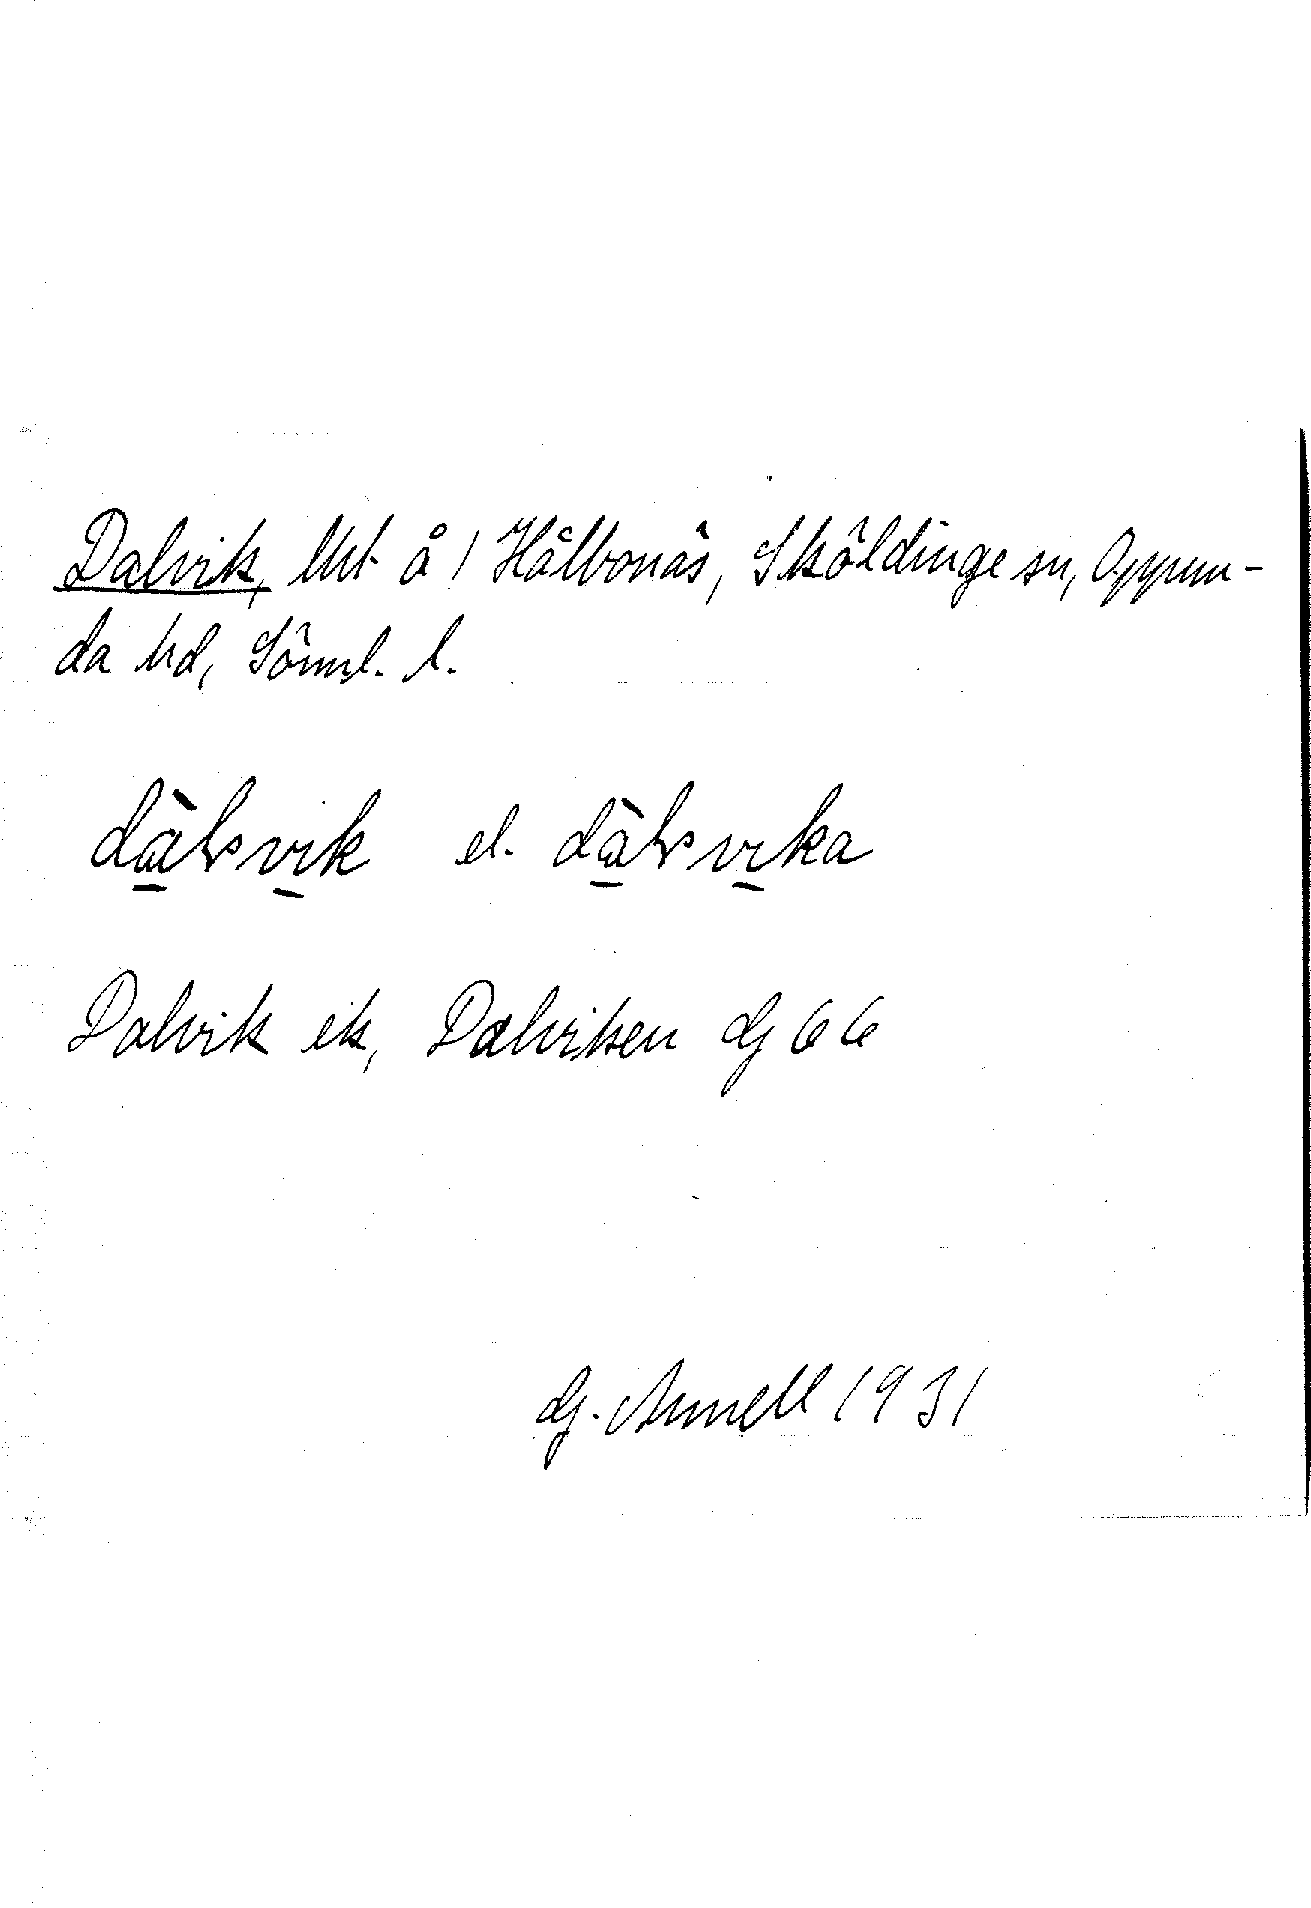 Dalvik, lht å 1 Hålbonäs, Sköldinge sn, Oppun-
da hd, Söml. l.
dàlvik el. dàlvika
Dalvik ek, Dalviken Gj 66
G. Annell 1931